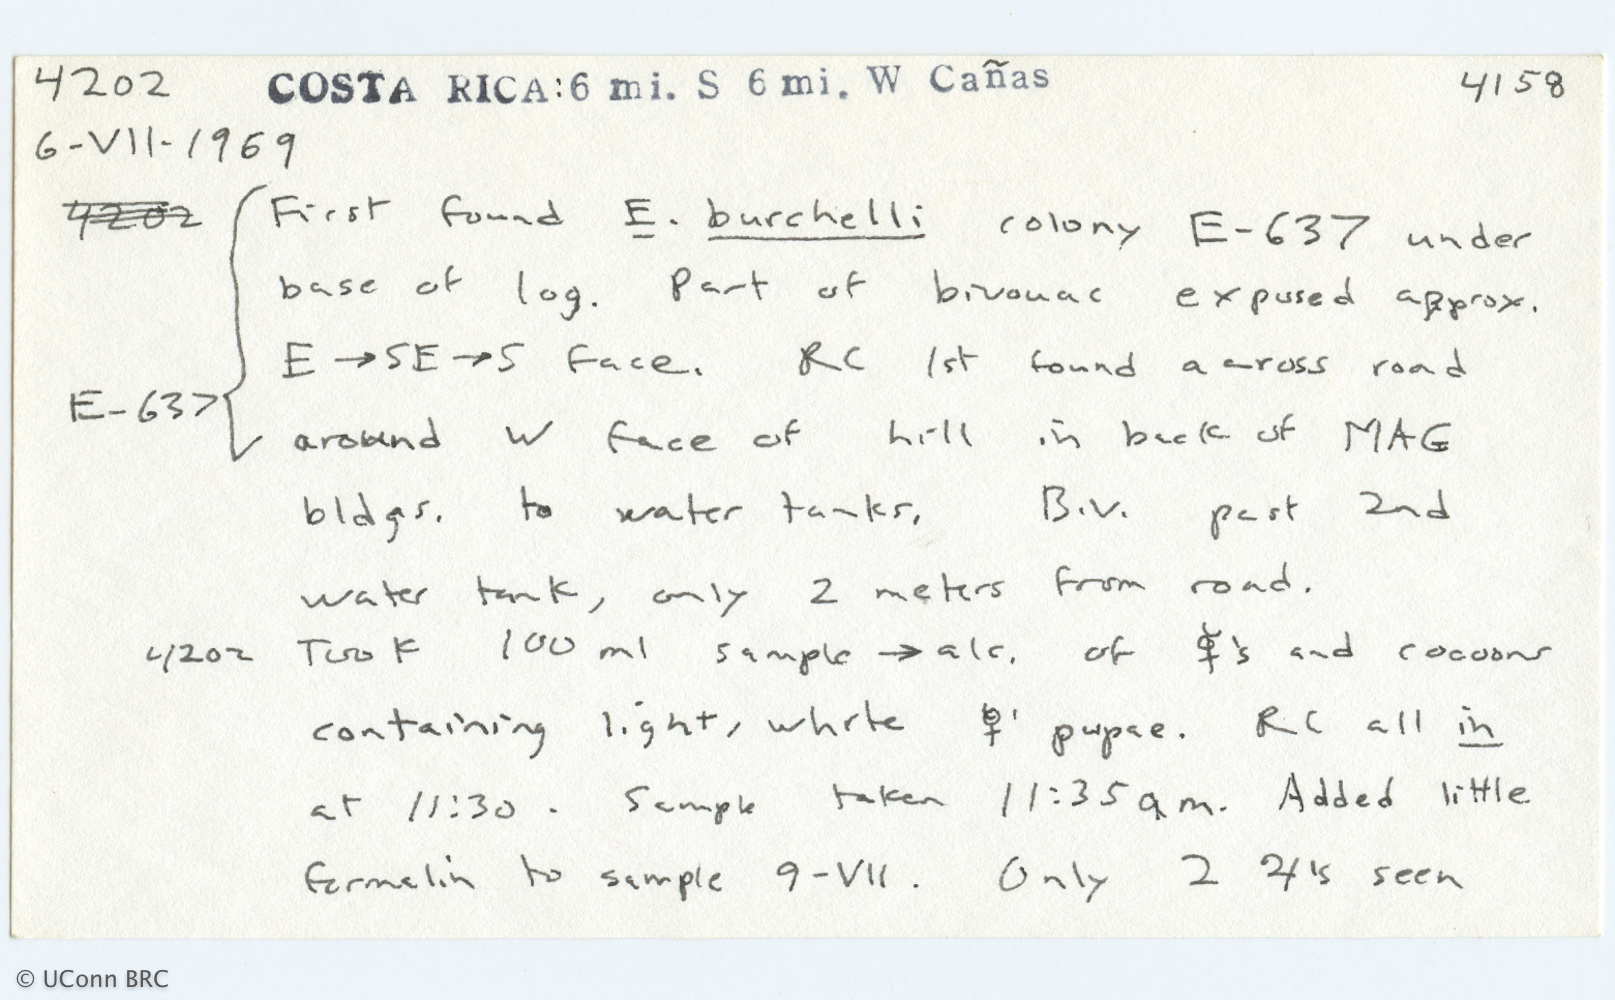 4202 COSTA RICA: 6 mi. S 6 mi. W Cañas 4158
6-VII-1969
4202 First found E. burchelli colony E-637 under
base of log. Part of bivouac exposed approx.
E → SE → S face. RC 1st found across road
E-637 around W face of hill in back of MAG
bldgs. to water tanks. B.V. past 2nd
water tank, only 2 meters from road.
4202 Took 100 ml sample → alc. of ☿'s and cocoons
containing light, white ☿' pupae. RC all in
at 11:30. Sample taken 11:35 am. Added little
formalin to sample 9-VII. Only 2 ♃'s seen
© UConn BRC